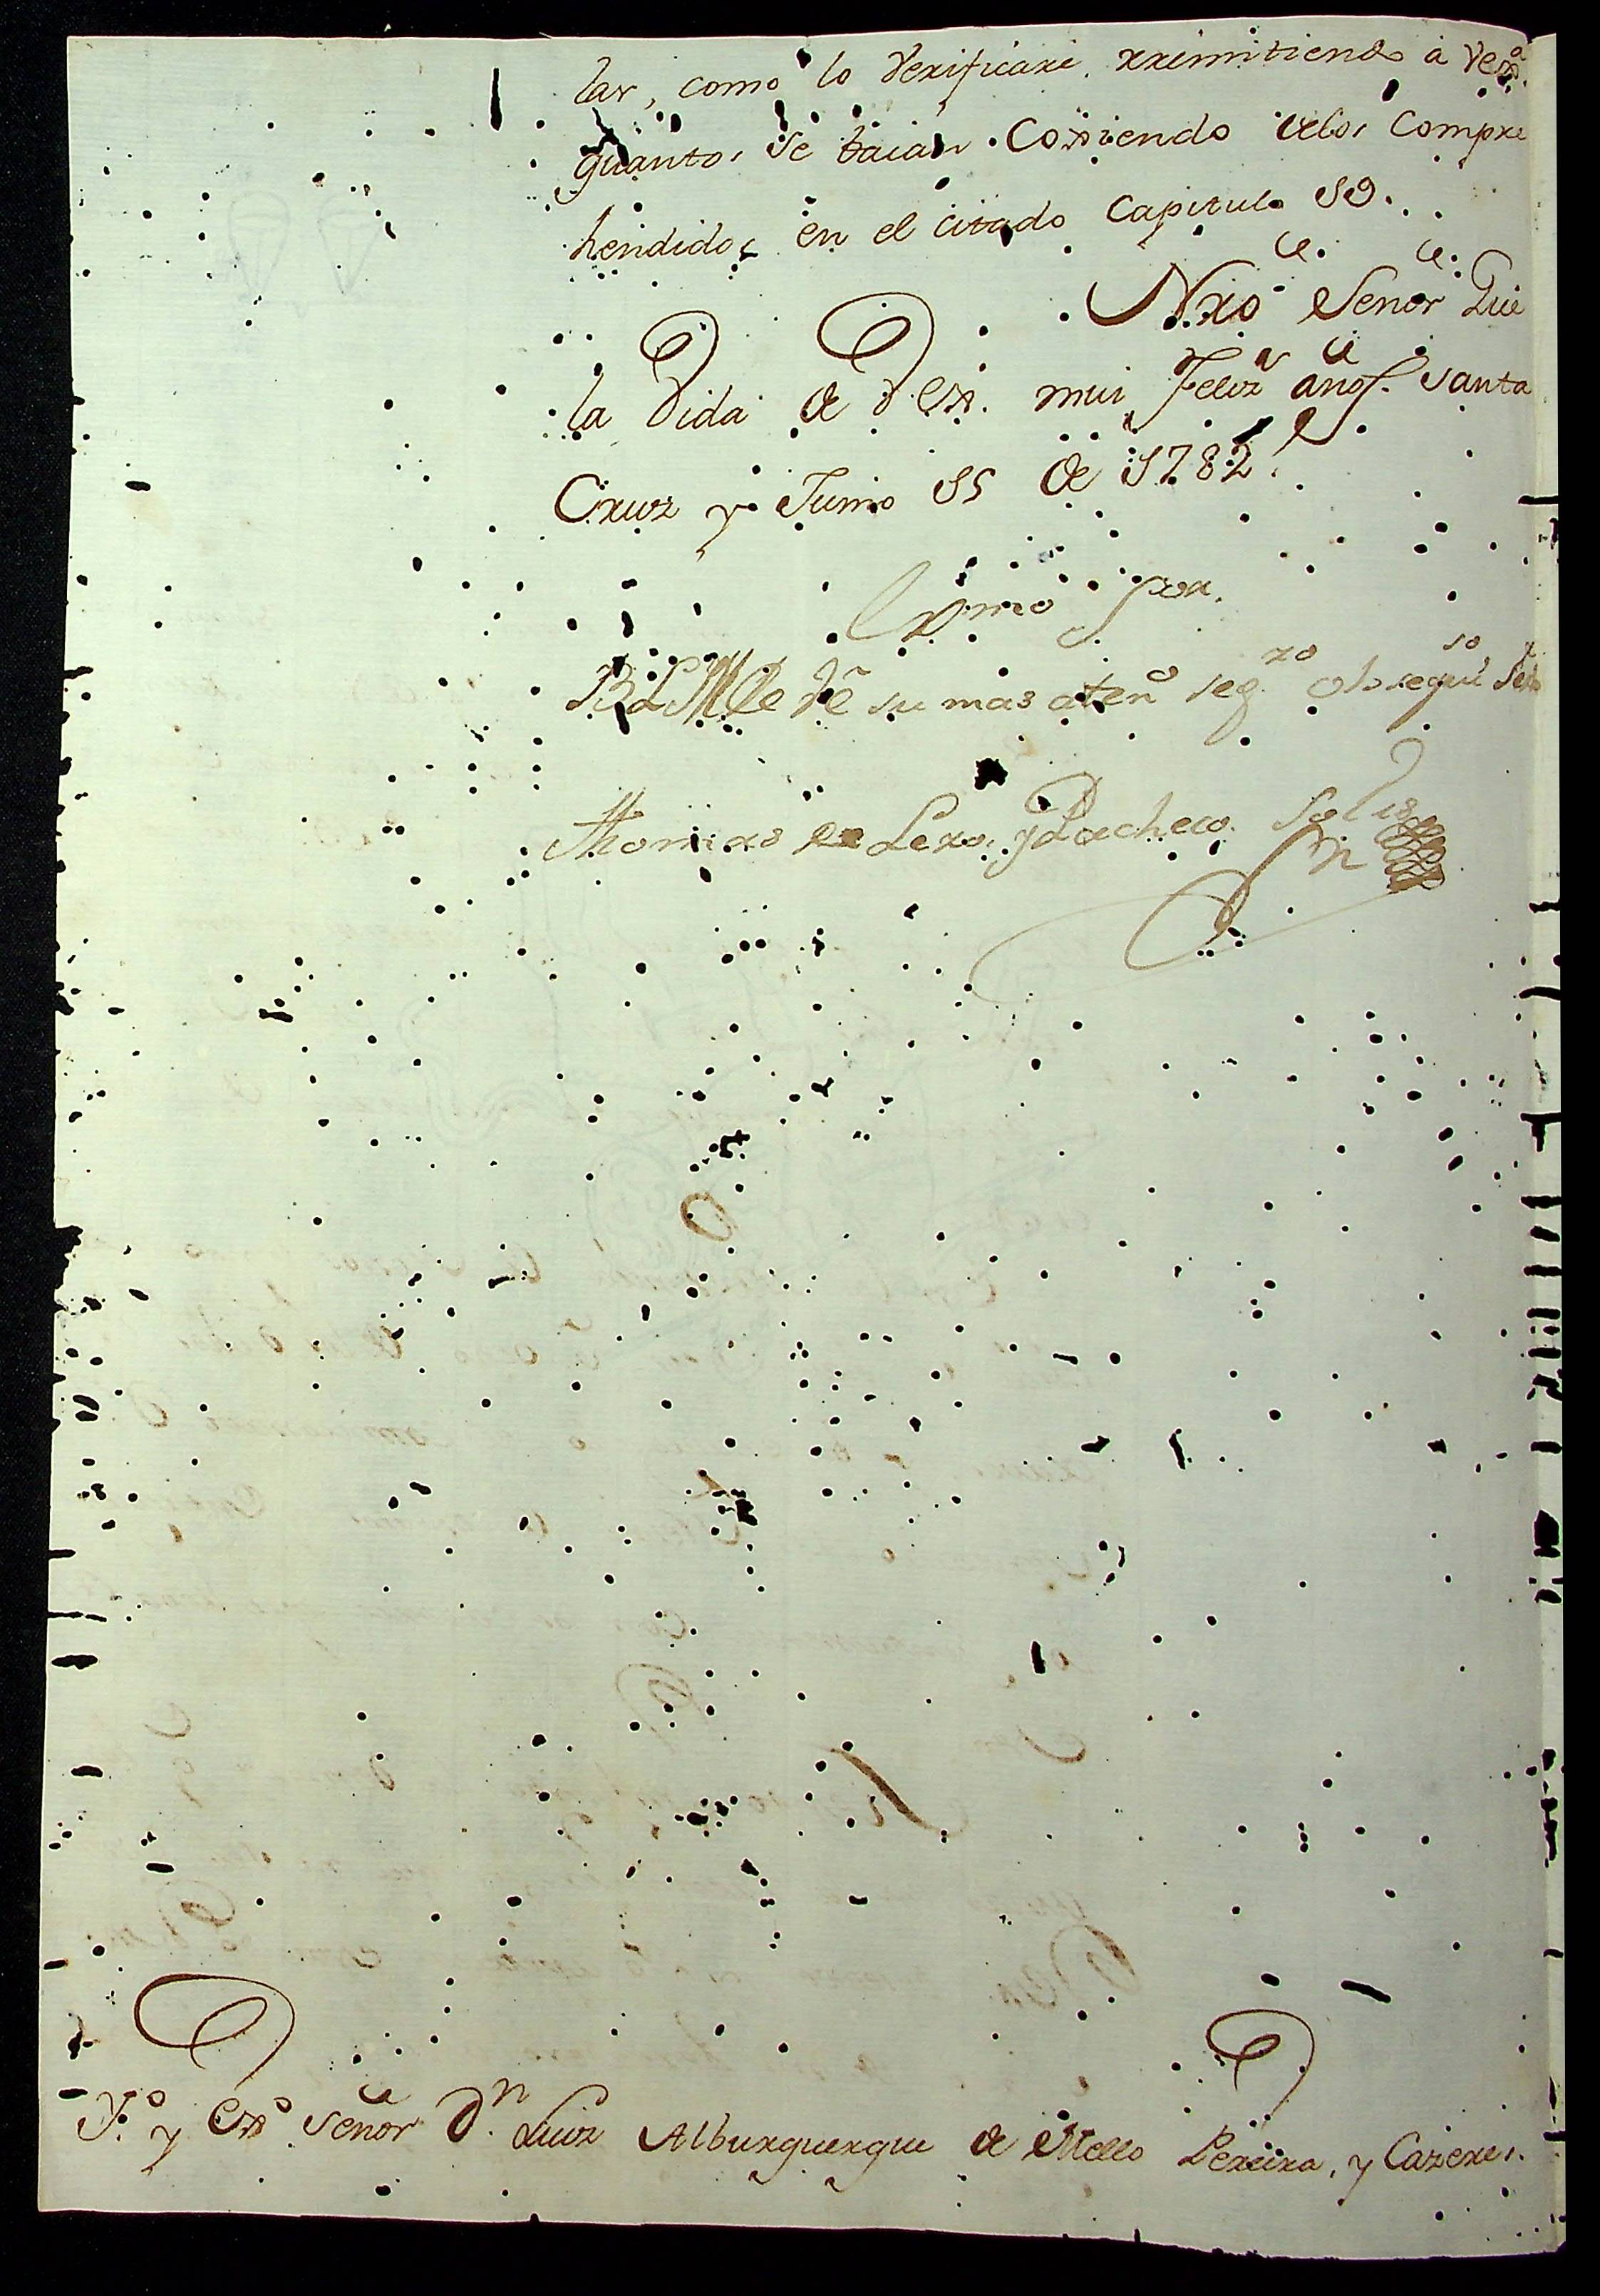 lar, como lo Verificare, rremitiendo a Vexª.
quantos se baian Cojiendo delos Compre
hendidos en el citado Capitulo 19.
Nro Señor Gûe
la Vida de V Ex. mui Feliz años. Santa
Cruz y Junio 15 de 1782.
Exmo Señor.
BLM de VE su mas atenº segro obsequioso
Thomas de Lezo, y Pacheco. Solis
Yº y Exº Señor Dn. Luiz Alburquerque de Mello Pereira, y Cazeres.